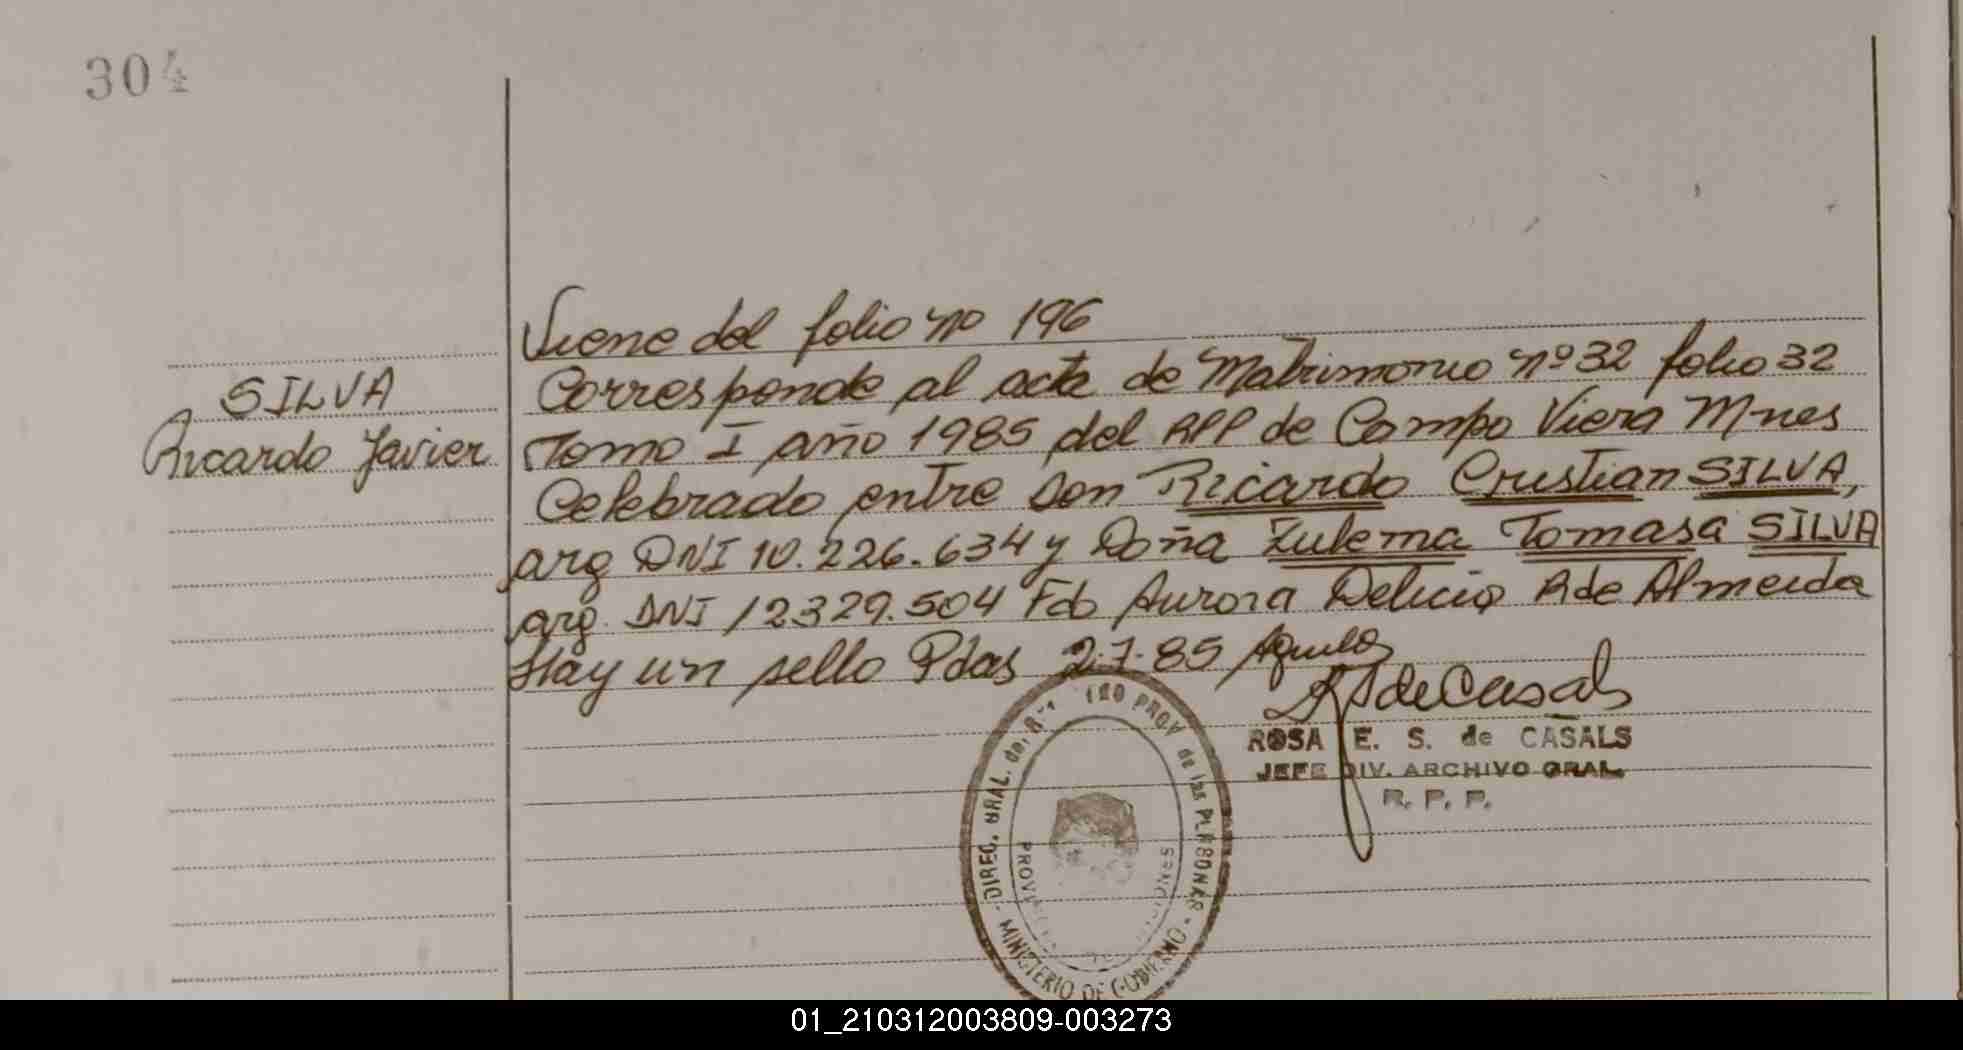 304
Viene del folio nº 196
SILVA
Ricardo Javier
Corresponde al acta de Matrimonio nº 32 folio 32
Tomo I año 1985 del RPP de Campo Viera Mnes
Celebrado entre Don Ricardo Cristian SILVA,
arg DNI 10.226.634 y Doña Zulema Tomasa SILVA
arg. DNI 12329.504 Fdo Aurora Delicia R de Almeida
Hay un sello Pdas 2-7-85
RS de Casals
ROSA E. S. de CASALS
JEFE DIV. ARCHIVO GRAL.
R. P. P.
DIREC. GRAL. del PROV. de las PERSONAS - MINISTERIO DE GOBIERNO -
01_210312003809-003273